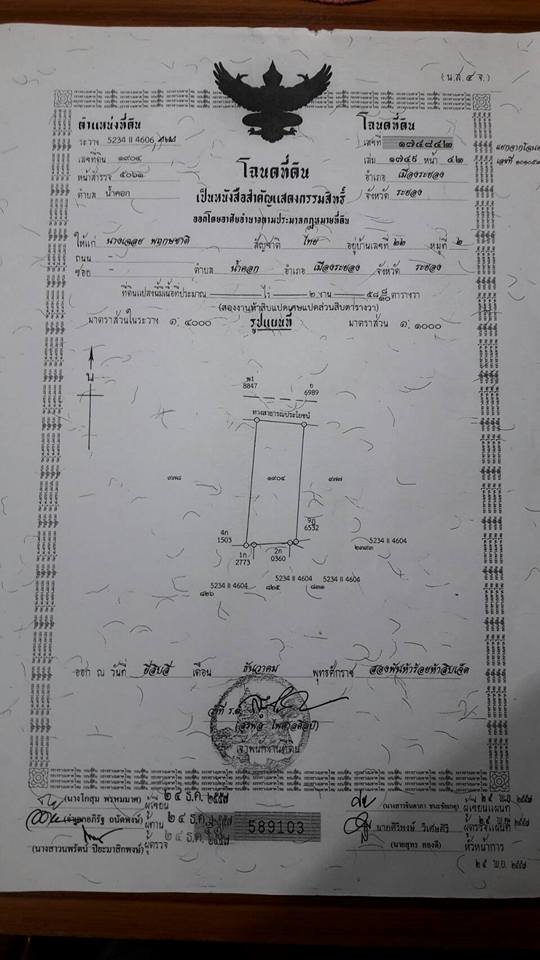 (น.ส.๔ จ.)
ตำแหน่งที่ดิน
ระวาง 5234 II 4606
เลขที่ดิน ๑๙๐๔
หน้าสำรวจ ๕๐๖๑
ตำบล น้ำคอก
โฉนดที่ดิน
เลขที่ ๑๗๔๘๔๒
เล่ม ๑๗๔๙ หน้า ๔๒
อำเภอ เมืองระยอง
จังหวัด ระยอง
โฉนดที่ดิน
เป็นหนังสือสำคัญแสดงกรรมสิทธิ์
ออกโดยอาศัยอำนาจตามประมวลกฎหมายที่ดิน
ให้แก่ นางเฉลย พฤกษชาติ สัญชาติ ไทย อยู่บ้านเลขที่ ๒๒ หมู่ที่ ๒
ถนน -
ซอย - ตำบล น้ำคอก อำเภอ เมืองระยอง จังหวัด ระยอง
ที่ดินแปลงนี้มีเนื้อที่ประมาณ - ไร่ ๒ งาน ๕๘ ๘/๑๐ ตารางวา
(สองงานห้าสิบแปดเศษแปดส่วนสิบตารางวา)
มาตราส่วนในระวาง ๑: ๔๐๐๐ รูปแผนที่ มาตราส่วน ๑: ๑๐๐๐
น
8847
6989
ทางสาธารณประโยชน์
๑๙๐๔
๙๗๗
4ก
1503
6532
1ก
2773
2ก
0360
5234 II 4604
5234 II 4604
5234 II 4604
5234 II 4604
๘๒๖
๘๒๕
ออก ณ วันที่ ยี่สิบสี่ เดือน ธันวาคม พุทธศักราช สองพันห้าร้อยห้าสิบเจ็ด
เจ้าพนักงานที่ดิน
ผู้เขียน ๒๔ ธ.ค. ๒๕๕๗
ผู้ทาน ๒๔ ธ.ค. ๒๕๕๗
ผู้ตรวจ ๒๔ ธ.ค. ๒๕๕๗
589103
ผู้เขียนแผนที่
นายศิริพงษ์ วิเศษศิริ ผู้ตรวจแผนที่
(นายสุทร ทองดี) หัวหน้าการ
๒๕ พ.ย. ๒๕๕๗